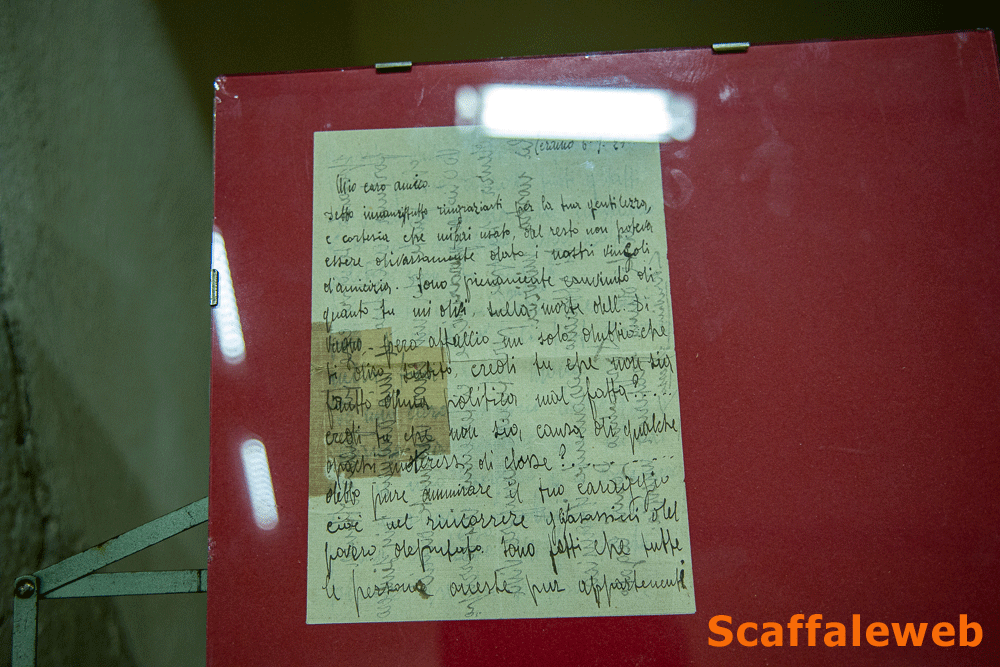 Mio caro amico.
Debbo innanzitutto ringraziarti per la tua gentilezza,
e cortesia che mi hai usato, del resto non poteva
essere diversamente dato i nostri vincoli
d'amicizia. Sono pienamente convinto di
quanto tu mi dici sulla morte dell. Di
Vagno. però affaccio un solo dubbio che
ti dico subito credi tu che non sia
frutto d'una politica mal fatta?....
credi tu che non sia causa di qualche
interessi di classe?...
debbo pure ammirare il tuo coraggio
cioè nel rincorrere gli assassini del
povero deputato. Sono fatti che tutte
le persone oneste pur appartenenti
Scaffaleweb